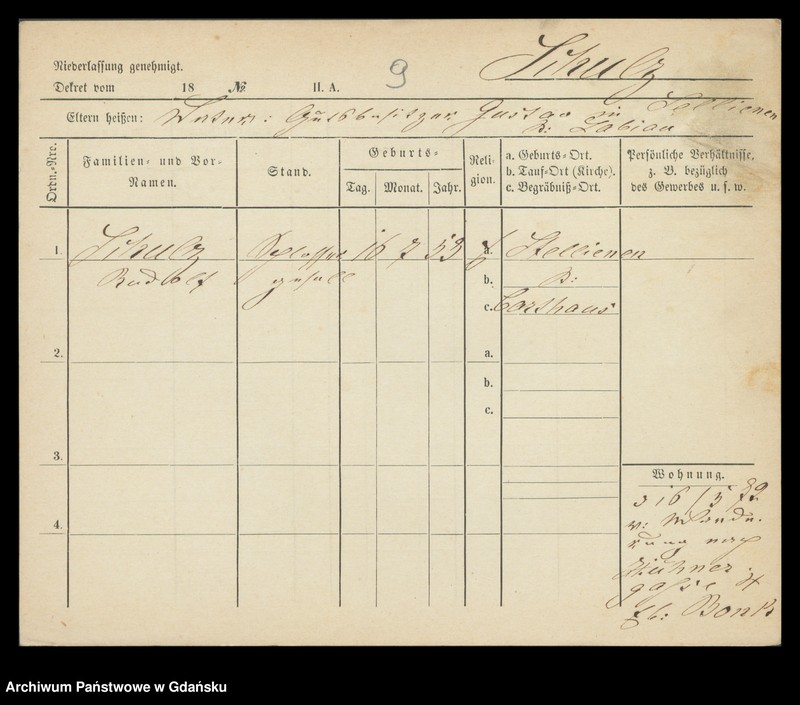 Schulz
Niederlassung genehmigt.
Dekret vom 18 № II. A. 9
Eltern heißen: Vater: Gutsbesitzer Gustav in
K: Labiau
Ordn.-Nro.
Familien- und Vor-Namen.
Stand.
Geburts-
Tag. Monat. Jahr.
Religion.
a. Geburts-Ort.
b. Tauf-Ort (Kirche).
c. Begräbniß-Ort.
Persönliche Verhältnisse,
z. B. bezüglich
des Gewerbes u. s. w.
1. Schulz Schlosser 16 7 53 a.
Rudolf gesell b. K:
c.
2. a.
b.
c.
3.
Wohnung.
16/5 79.
v: Wande-
4. rung nach
Hühner-
gasse 4
b: Bonk
Archiwum Państwowe w Gdańsku